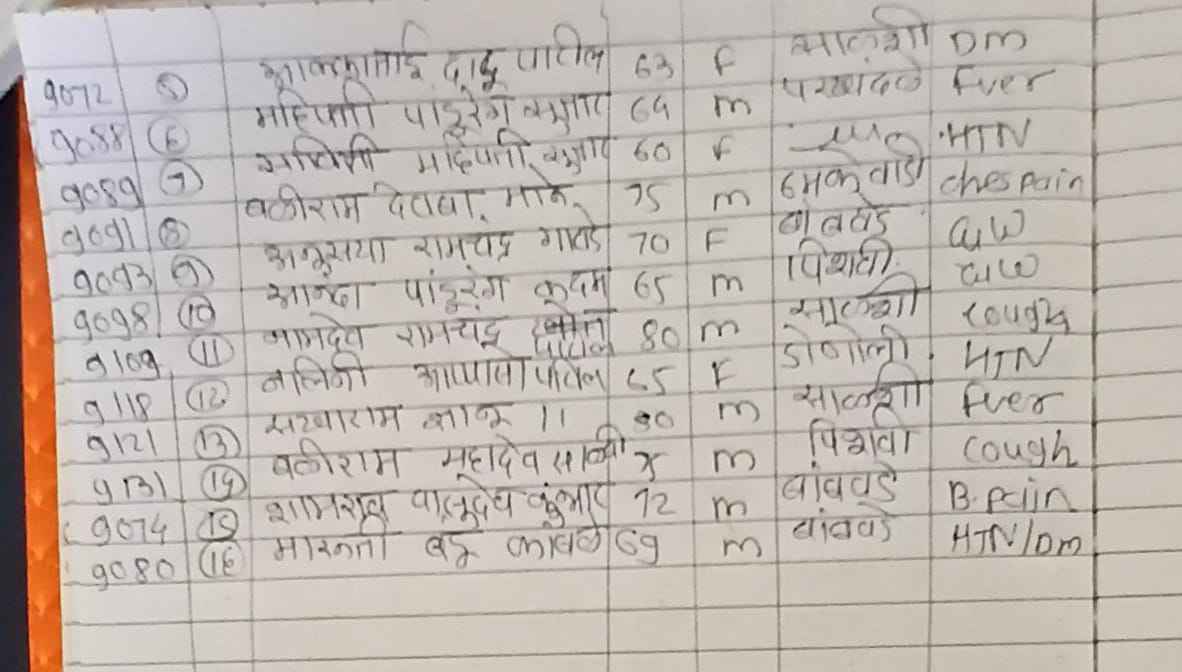 9072 ⑤ आक्काताई दादू पाटील 63 F साळशी DM
9088 ⑥ महिपती पांडूरंग कुंभार 64 m परखंदळे Fver
9089 ⑦ महिपती कुंभार 60 F HTN
9091 ⑧ बळीराम देवबा माने 75 m chespain
9093 ⑨ अनुसया रामचंद्र गावडे 70 F बांबवडे G/W
9098 ⑩ आनंदा पांडूरंग कदम 65 m पिशवी G/W
9109 ⑪ नामदेव रामचंद्र पाटील 80 m साळशी cough
9118 ⑫ नलिनी पाटील 65 F डोणोली HTN
9121 ⑬ सखाराम 11 80 m साळशी Fver
9131 ⑭ बळीराम महादेव साळवी m पिशवी cough
9074 ⑮ शामराव वासुदेव कुंभार 72 m बांबवडे B.pain
9080 ⑯ मारुती बंडू कांबळे 69 m बांबवडे HTN/Dm